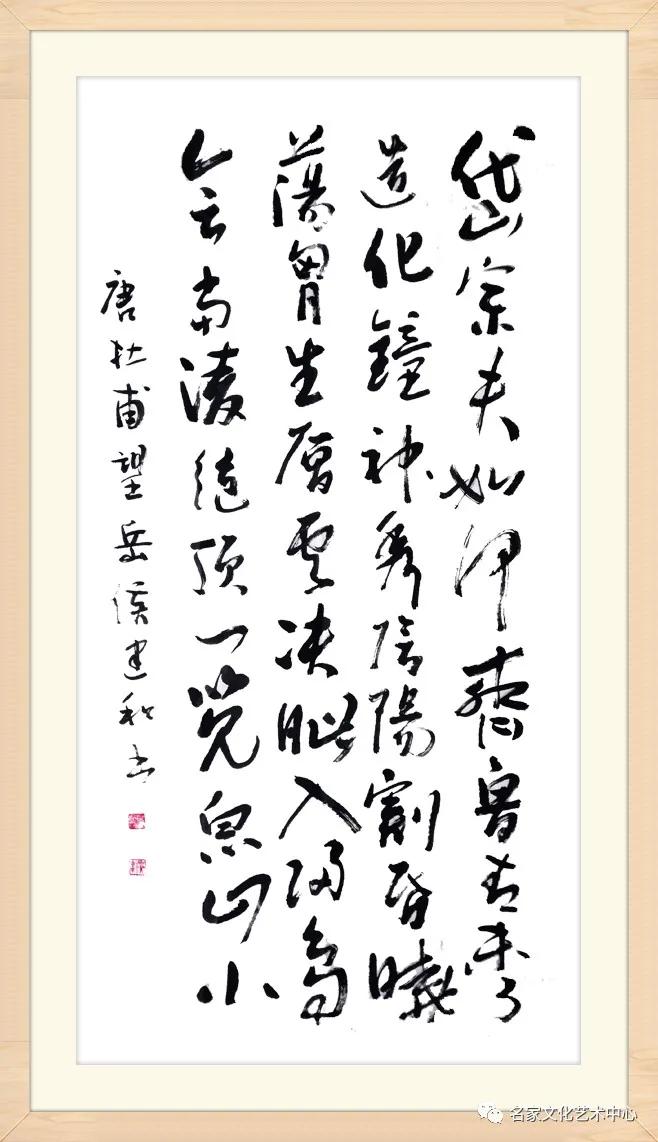 岱宗夫如何齊魯青未了
造化鐘神秀陰陽割昏曉
蕩胷生層雲決眦入歸鳥
會當凌絕頂一覽眾山小
唐杜甫望岳侯建和書
名家文化艺术中心